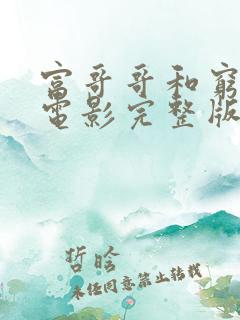 富哥哥和窮
電影完整版
哲晗
未经同意禁止转载